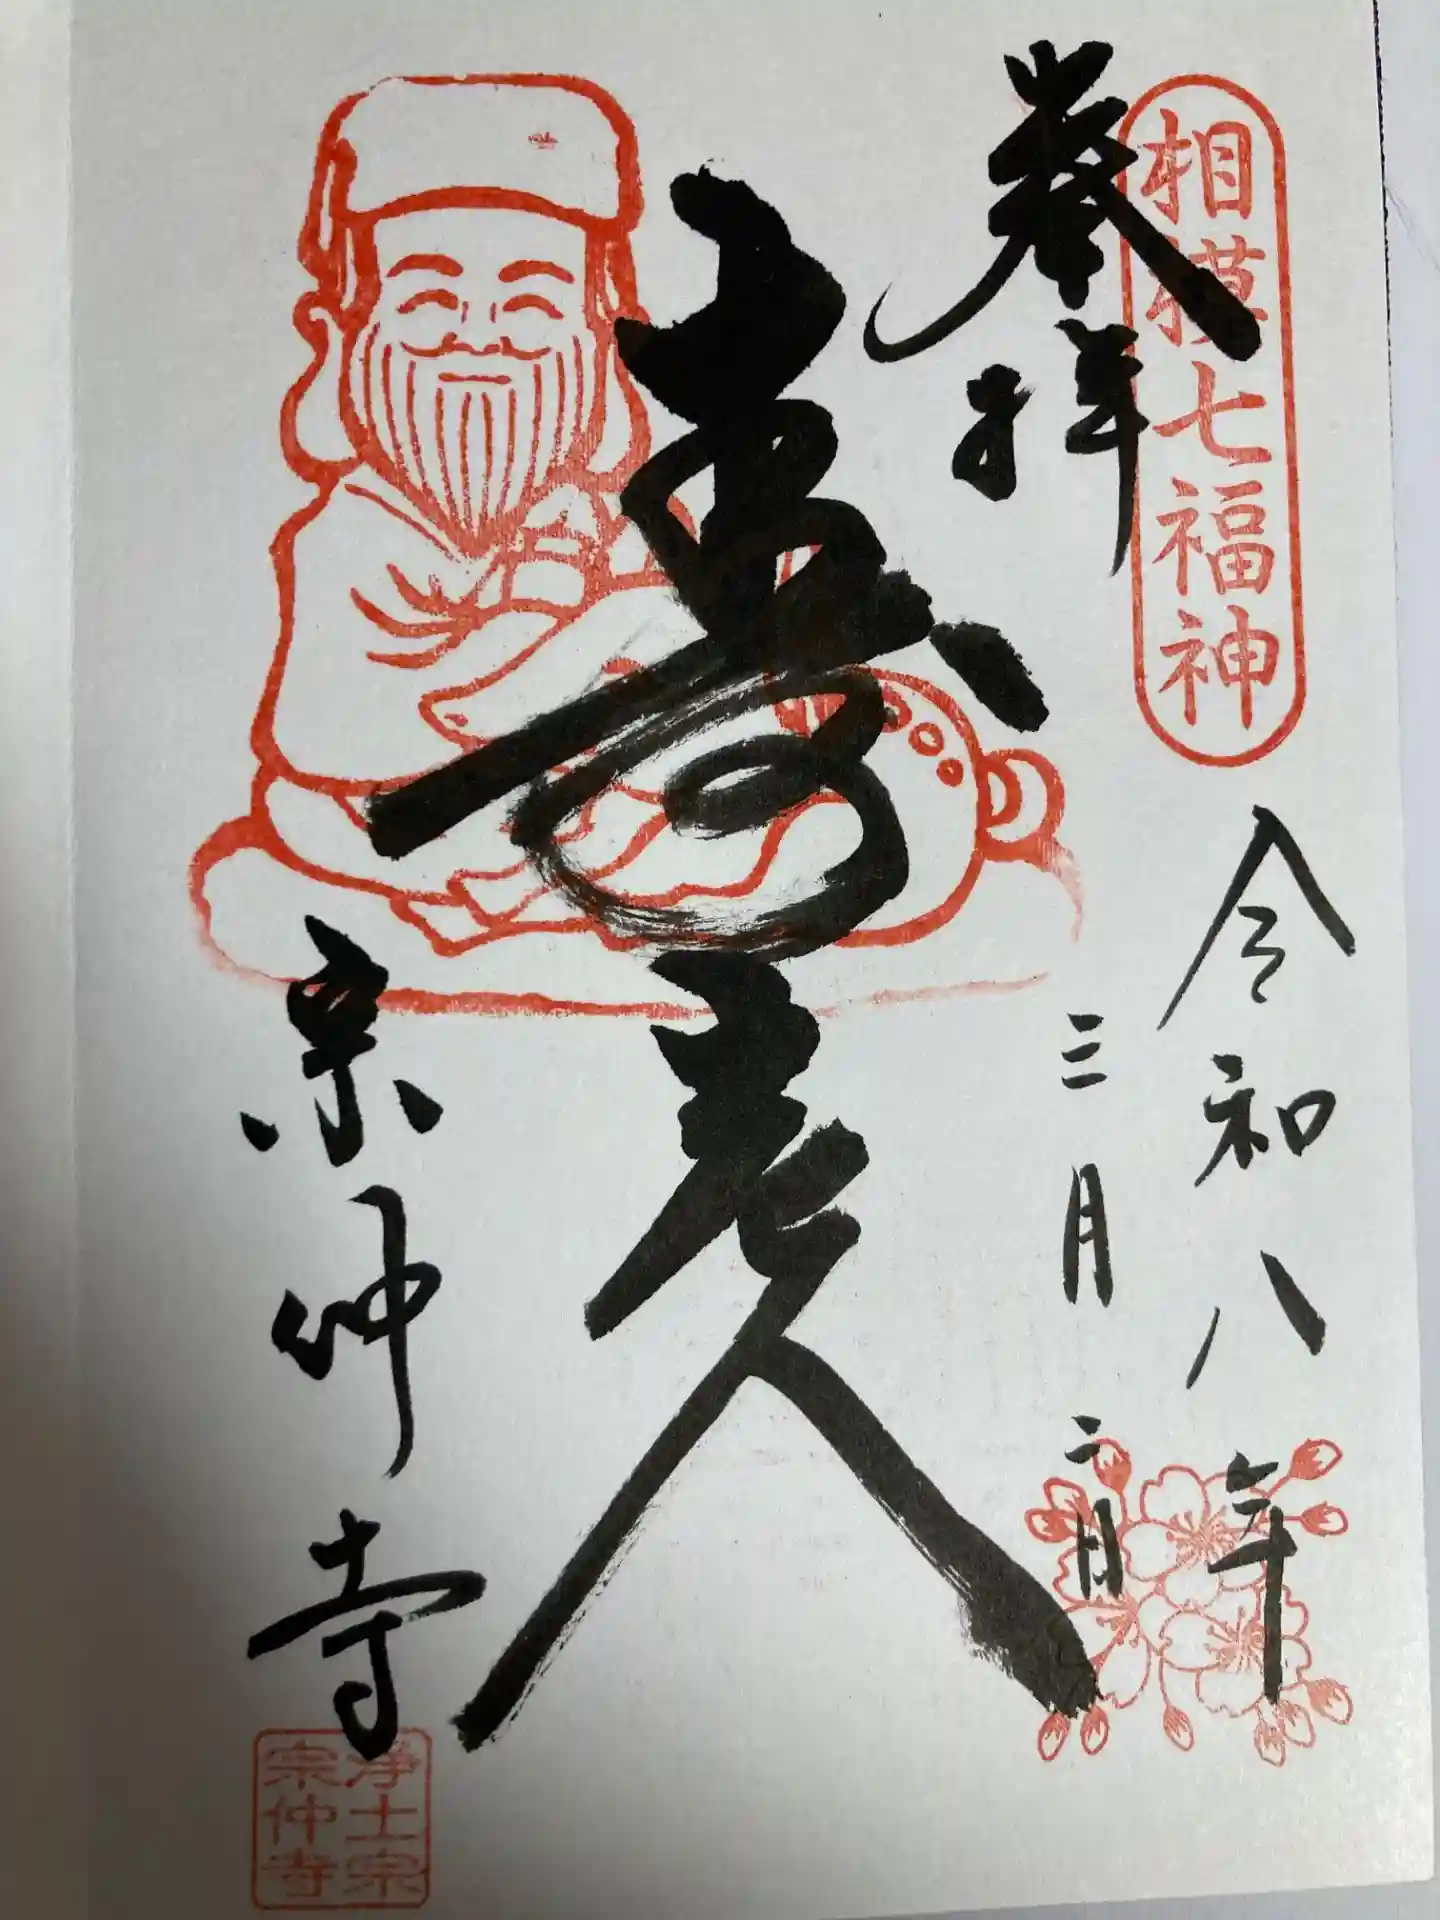 相模七福神
奉拝
令和八年
三月二日
寿老人
宗仲寺
浄土宗
宗仲寺